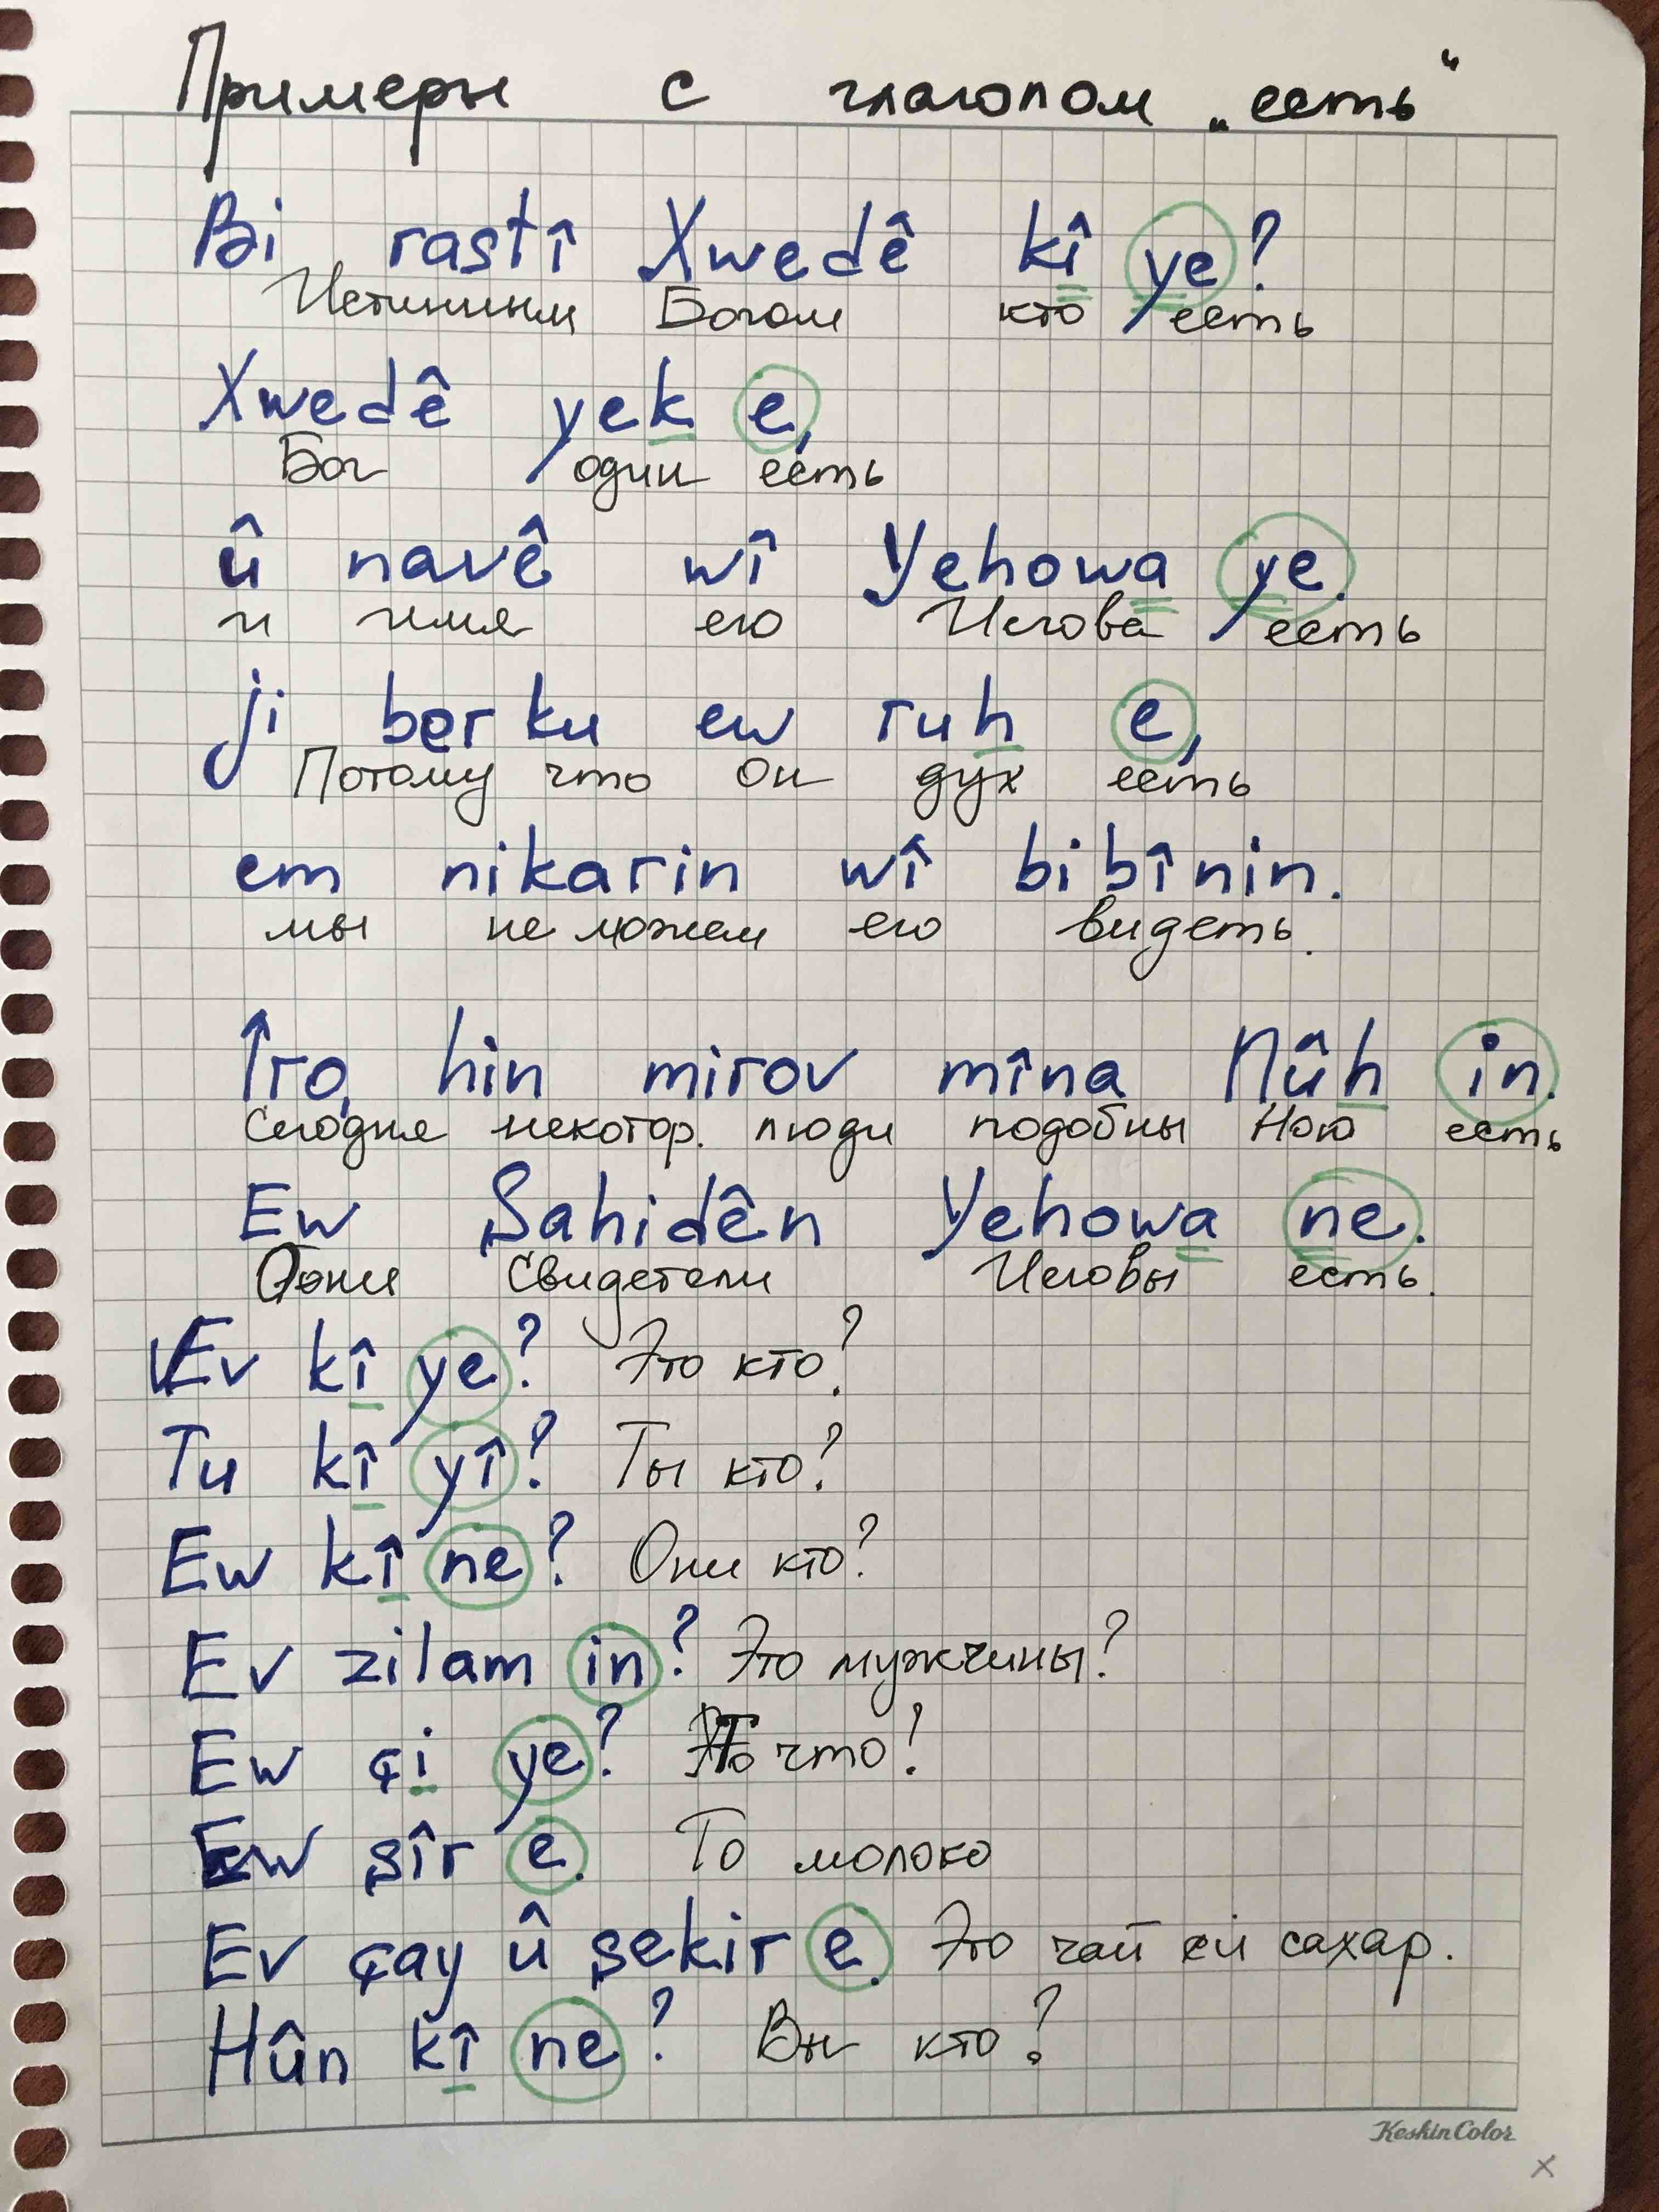 Примеры с глаголом „есть“
Bi rastî Xwedê kî ye?
Истинным Богом кто есть
Xwedê yek e,
Бог один есть
û navê wî Yehowa ye.
и имя его Иегова есть
ji ber ku ew ruh e,
Потому что он дух есть
em nikarin wî bibînin.
мы не можем его видеть.
Îro, hin mirov mîna Nûh in.
Сегодня некотор. люди подобны Ною есть
Ew Şahidên Yehowa ne.
Они Свидетели Иеговы есть.
Ev kî ye? Это кто?
Tu kî yî? Ты кто?
Ew kî ne? Они кто?
Ev zilam in? Это мужчины?
Ew çi ye? То что?
Ew şîr e. То молоко
Ev çay û şekir e. Это чай и сахар.
Hûn kî ne? Вы кто?
KeskinColor